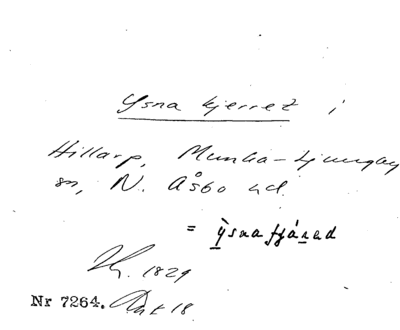 Ysna kjerret i
Hillarp, Munka-Ljungby
sn, N. Åsbo hd.
= ỳsnafjárad
1829
Nr 7264. Akt 18